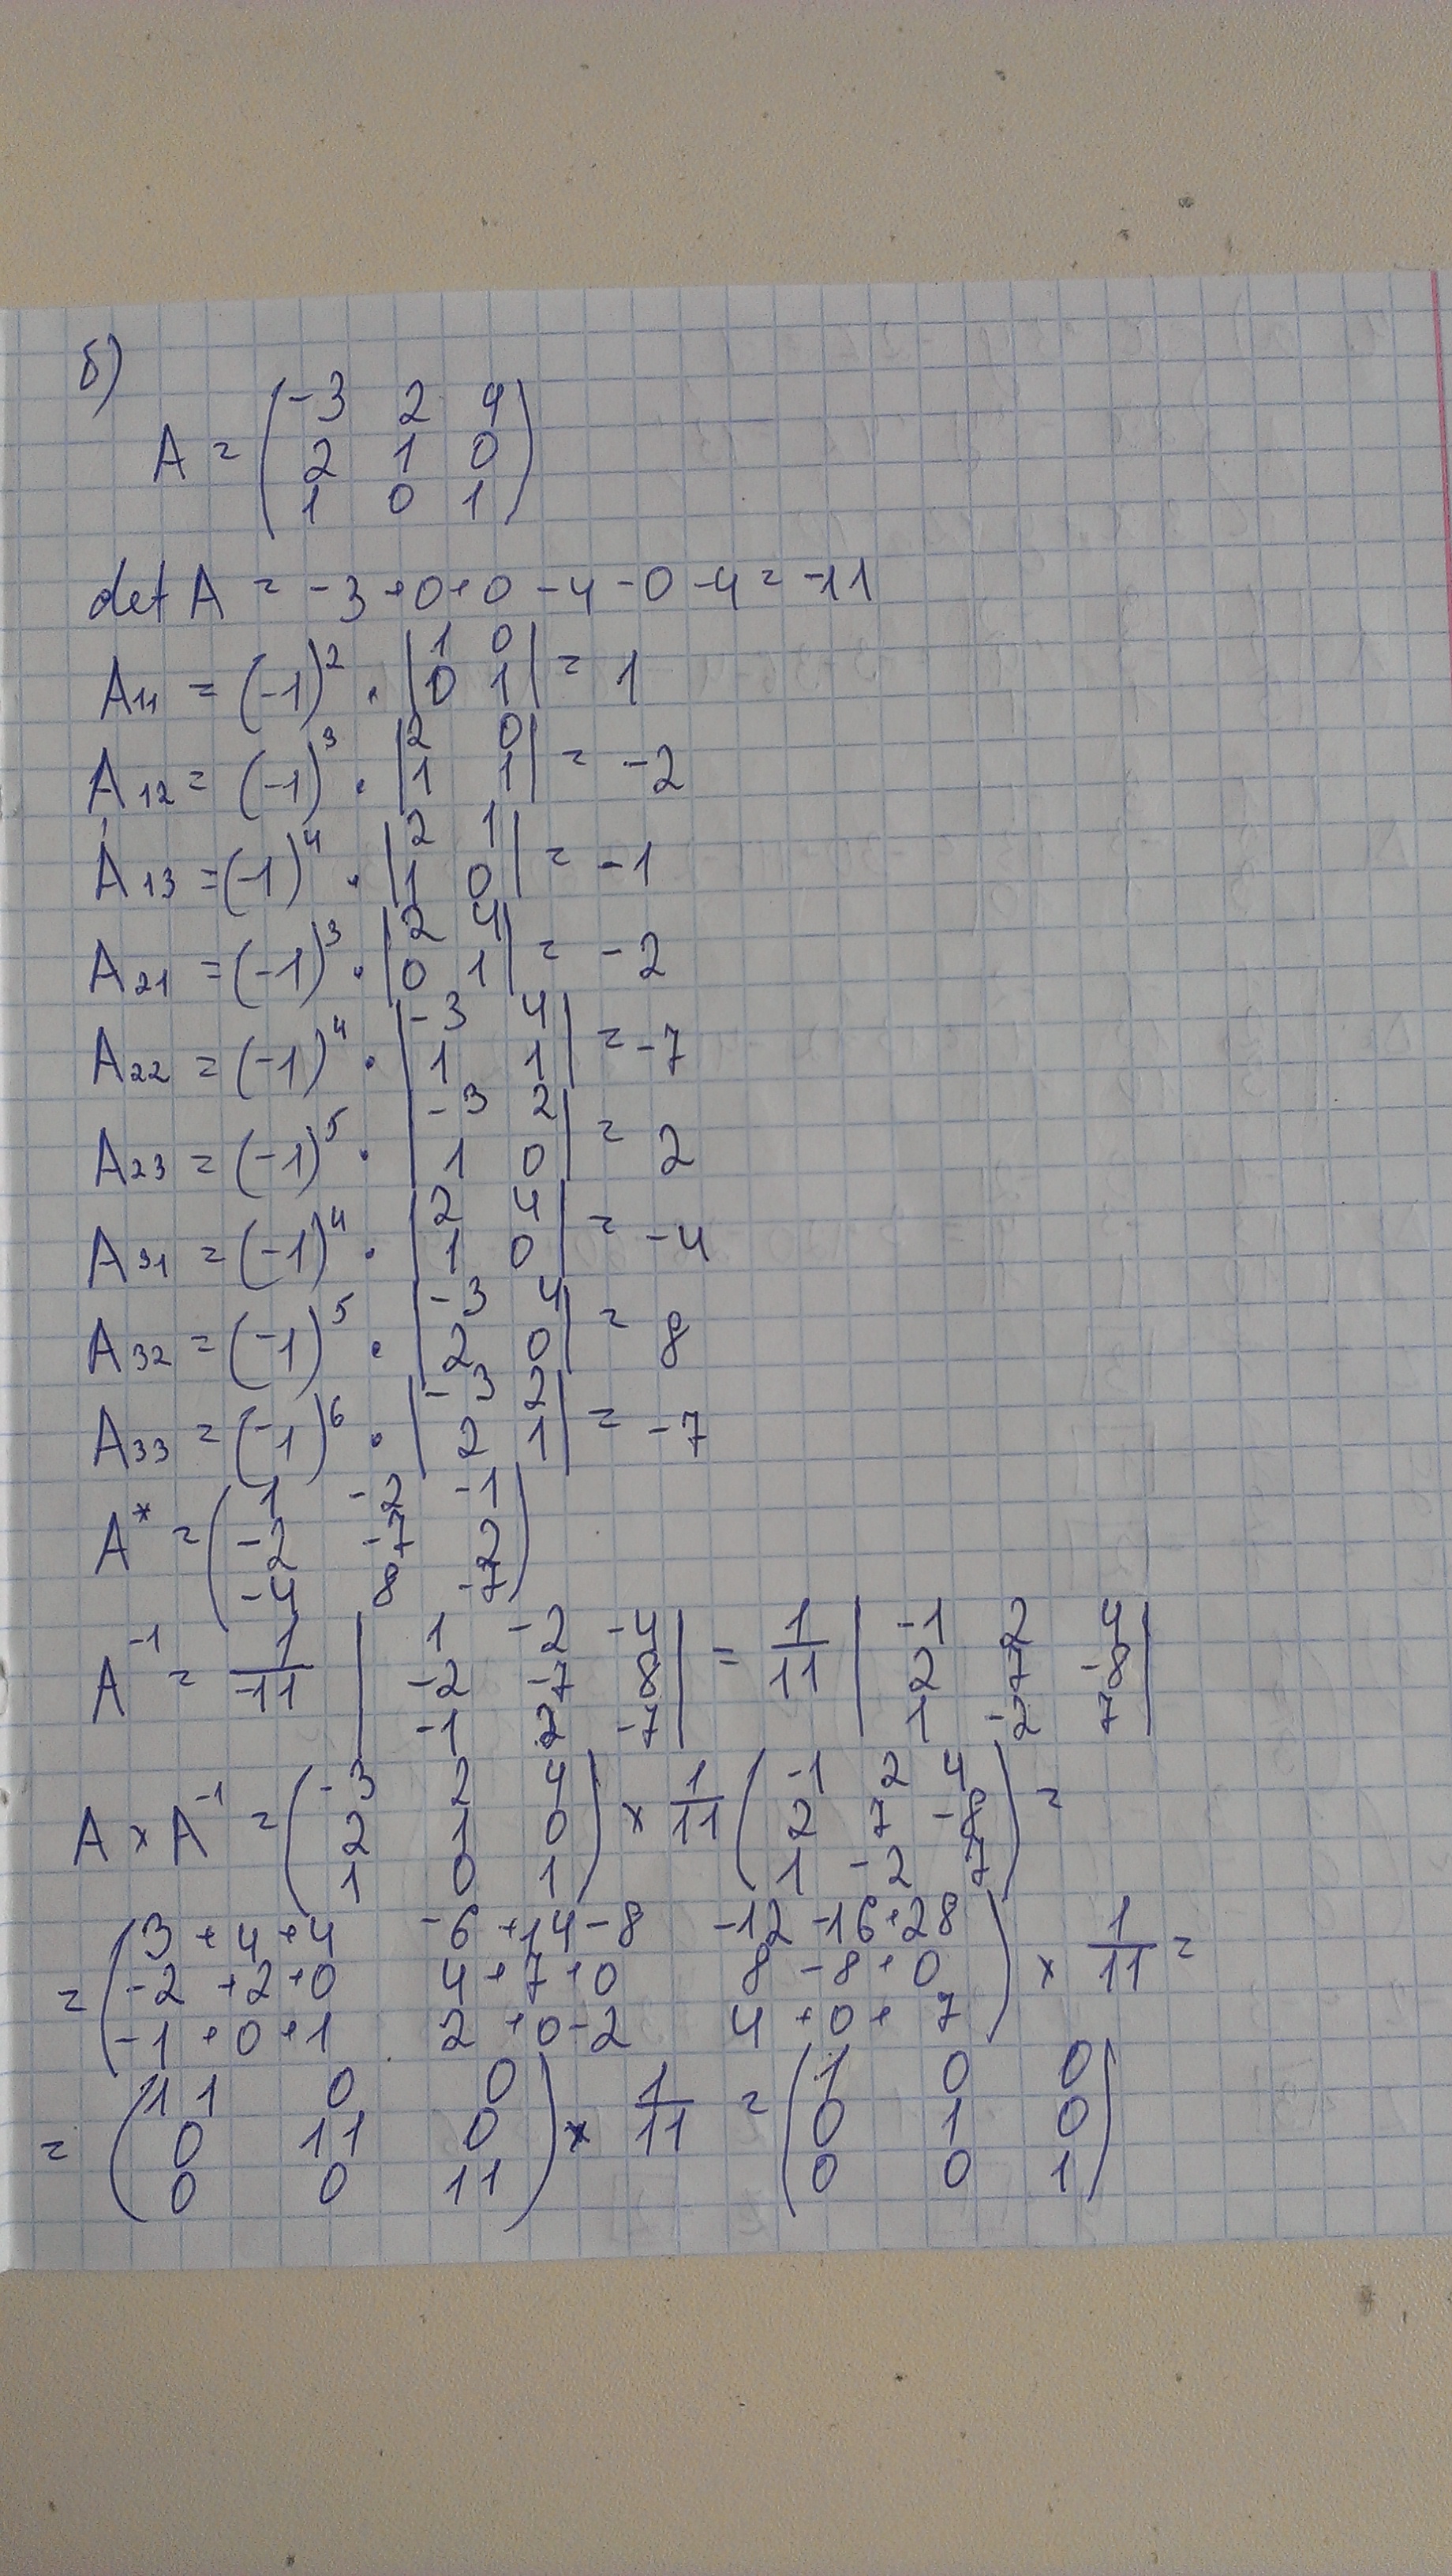 б)
A = (-3 2 4
2 1 0
1 0 1)
det A = -3+0+0-4-0-4=-11
A11 = (-1)^2 · |1 0
0 1| = 1
A12 = (-1)^3 · |2 0
1 1| = -2
A13 = (-1)^4 · |2 1
1 0| = -1
A21 = (-1)^3 · |2 4
0 1| = -2
A22 = (-1)^4 · |-3 4
1 1| = -7
A23 = (-1)^5 · |-3 2
1 0| = 2
A31 = (-1)^4 · |2 4
1 0| = -4
A32 = (-1)^5 · |-3 4
2 0| = 8
A33 = (-1)^6 · |-3 2
2 1| = -7
A* = (1 -2 -1
-2 -7 2
-4 8 -7)
A^-1 = 1/-11 |1 -2 -4
-2 -7 8
-1 2 -7| = 1/11 |-1 2 4
2 7 -8
1 -2 7|
A × A^-1 = (-3 2 4
2 1 0
1 0 1) × 1/11 (-1 2 4
2 7 -8
1 -2 7) =
= (3+4+4 -6+14-8 -12-16+28
-2+2+0 4+7+0 8-8+0
-1+0+1 2+0-2 4+0+7) × 1/11 =
= (11 0 0
0 11 0
0 0 11) × 1/11 = (1 0 0
0 1 0
0 0 1)